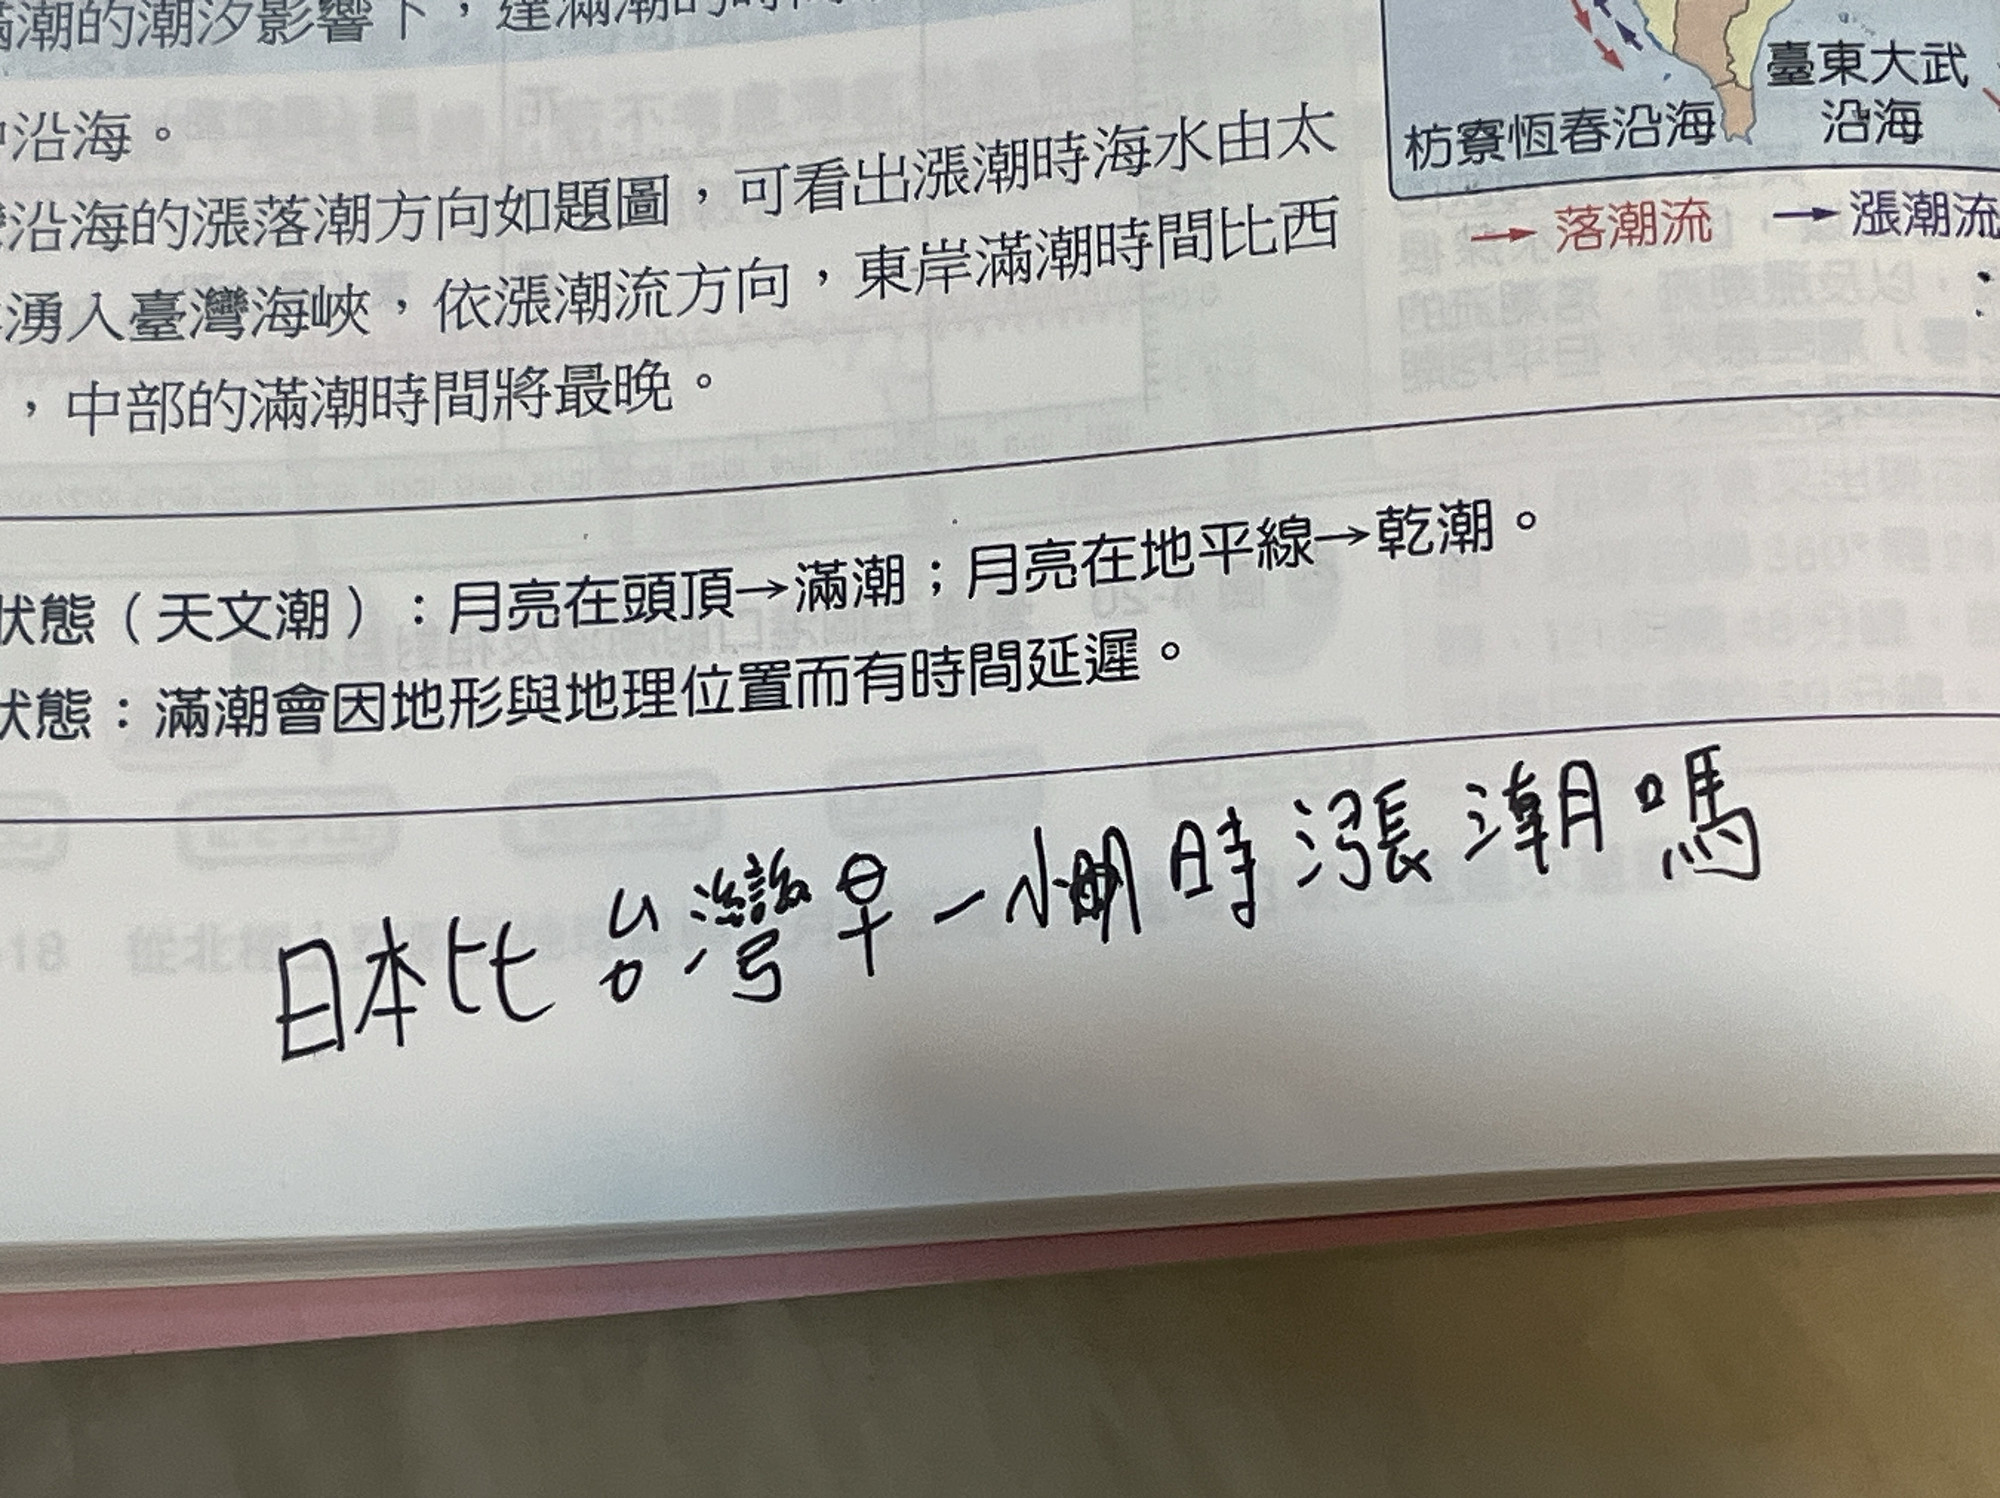 滿潮的潮汐影響下，達滿潮的時間
沿海。
沿海的漲落潮方向如題圖，可看出漲潮時海水由太
湧入臺灣海峽，依漲潮流方向，東岸滿潮時間比西
，中部的滿潮時間將最晚。
臺東大武
沿海
枋寮恆春沿海
→ 落潮流 → 漲潮流
狀態（天文潮）：月亮在頭頂→滿潮；月亮在地平線→乾潮。
狀態：滿潮會因地形與地理位置而有時間延遲。
日本比台灣早一小時漲潮嗎